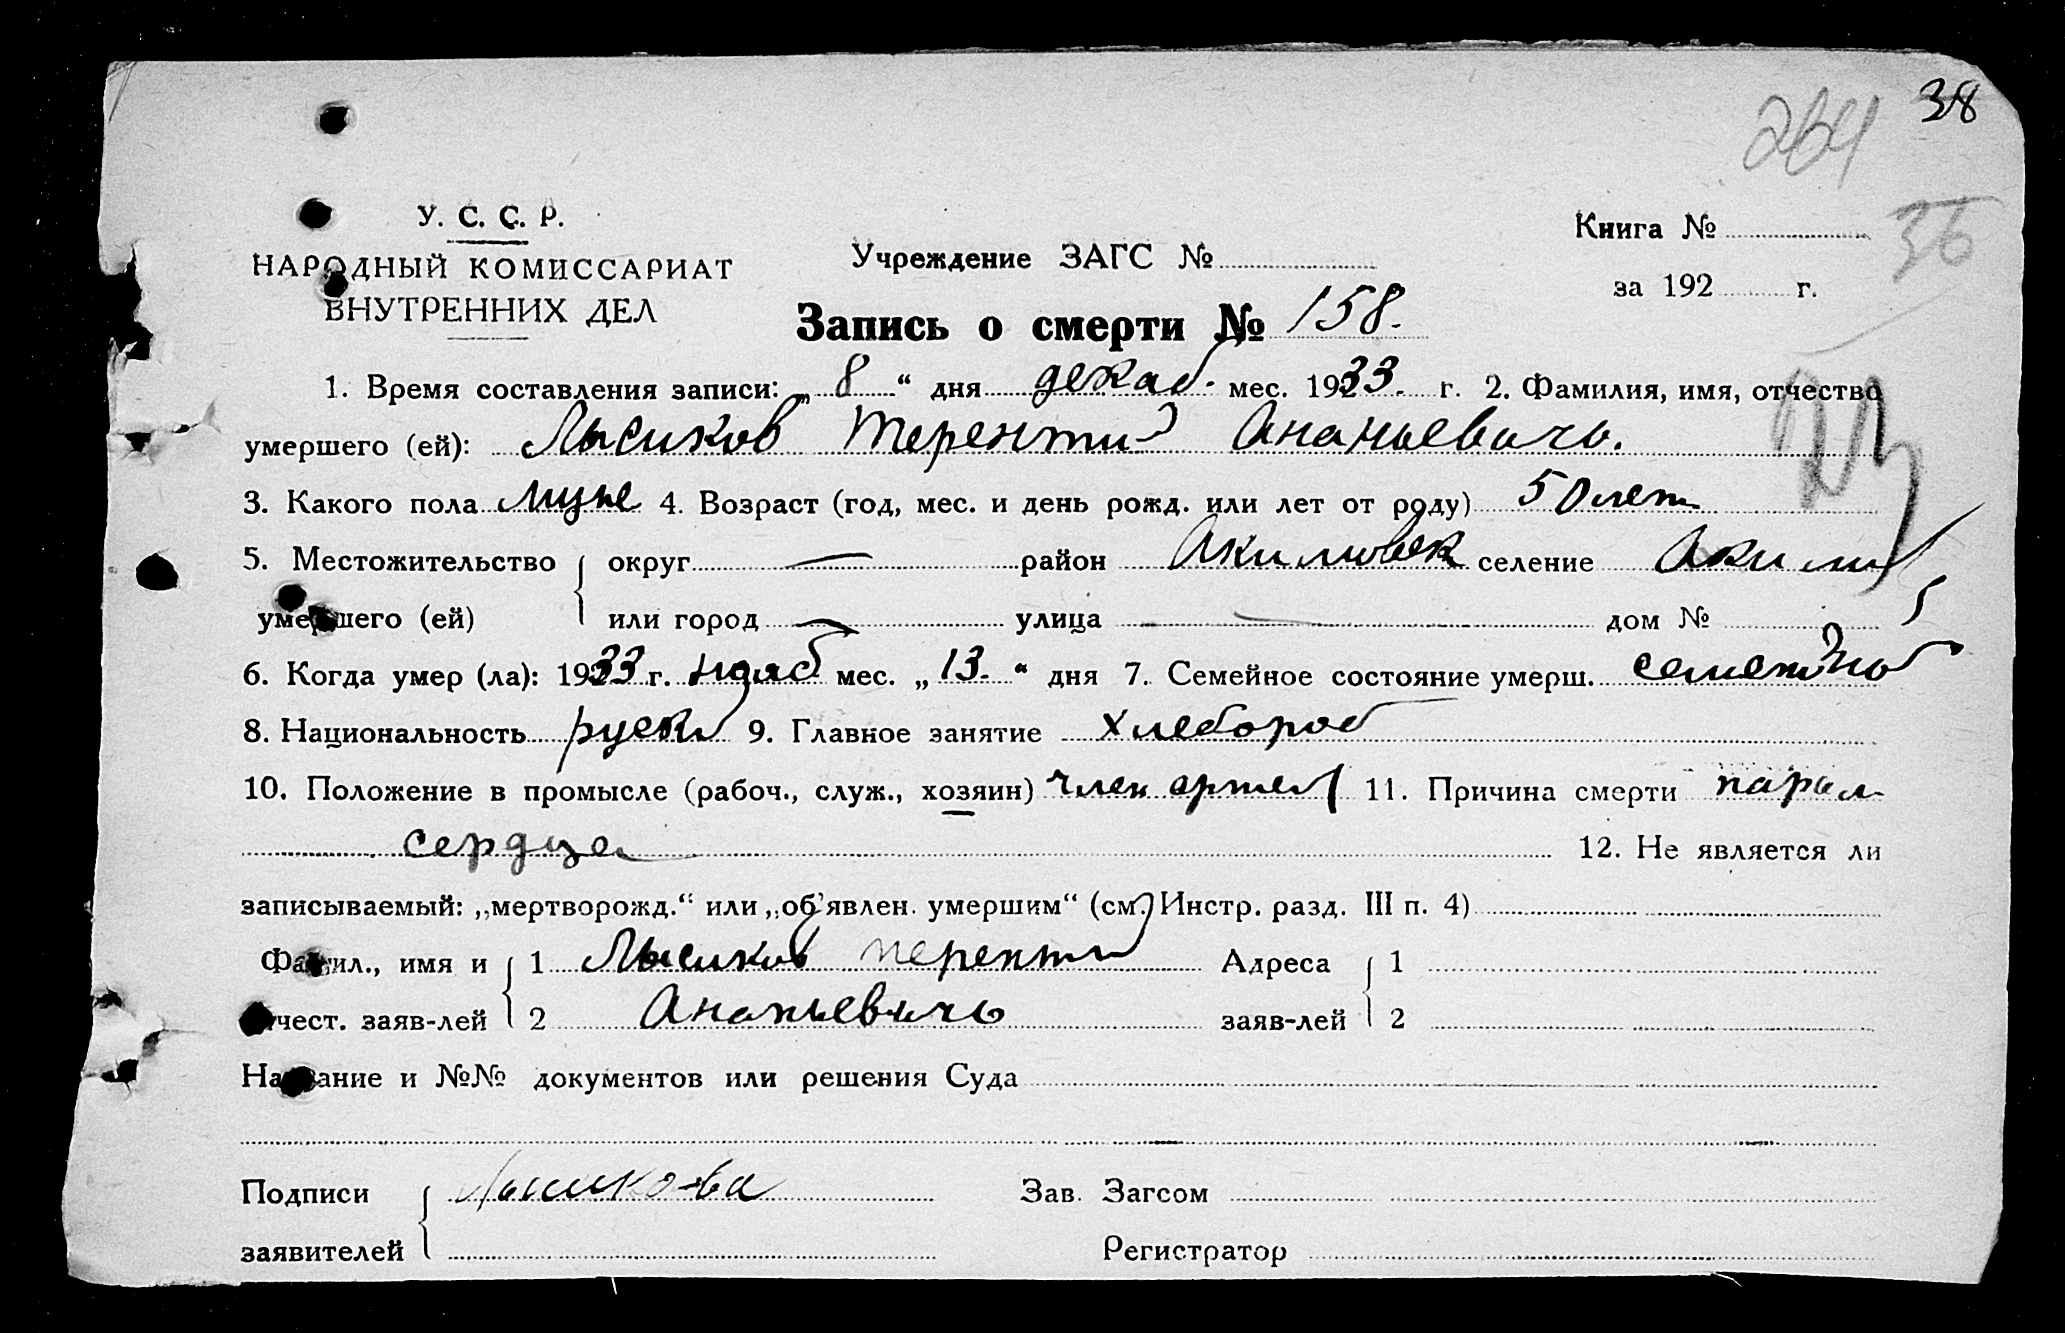 38
264
36
У. С. С. Р.
НАРОДНЫЙ КОМИССАРИАТ
ВНУТРЕННИХ ДЕЛ
Учреждение ЗАГС №
Книга №
за 192 г.
Запись о смерти № 158.
1. Время составления записи: „ 8 “ дня декаб. мес. 1933. г. 2. Фамилия, имя, отчество
умершего (ей): Лысиков Терентий Ананьевичь.
3. Какого пола муже 4. Возраст (год, мес. и день рожд. или лет от роду) 50 лет
5. Местожительство округ — район Акимовск селение Акимов
умершего (ей) или город — улица — дом №
6. Когда умер (ла): 1933 г. нояб мес. „ 13. “ дня 7. Семейное состояние умерш. семейной
8. Национальность руски 9. Главное занятие хлебороб
10. Положение в промысле (рабоч., служ., хозяин) член артел 11. Причина смерти парал
сердца 12. Не является ли
записываемый: „мертворожд.“ или „об'явлен. умершим“ (см. Инстр. разд. III п. 4)
Фамил., имя и 1 Лысиков терентий Адреса 1
отчест. заяв-лей 2 Ананьевичь заяв-лей 2
Название и №№ документов или решения Суда
Подписи Лысикова Зав. Загсом
заявителей Регистратор